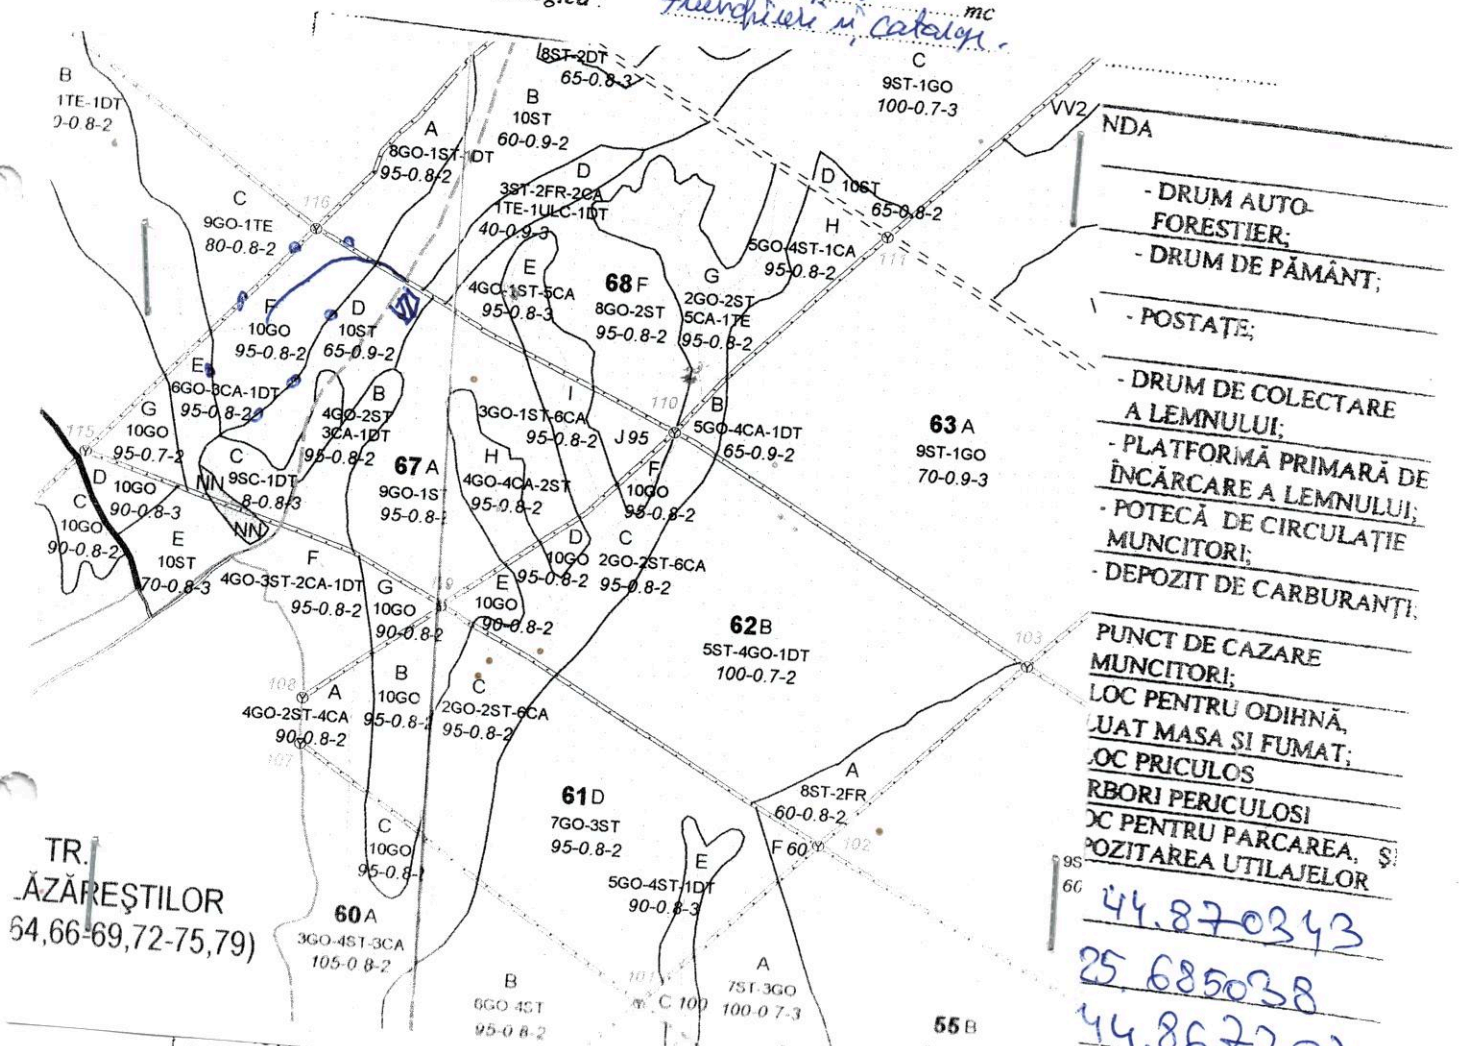 mc
8ST-2DT
65-0.8-3
C
9ST-1GO
100-0.7-3
VV2
B
1TE-1DT
0-0.8-2
B
10ST
60-0.9-2
A
8GO-1ST-1DT
95-0.8-2
D
3ST-2FR-2CA
1TE-1ULC-1DT
40-0.9-3
D 10ST
65-0.8-2
C
9GO-1TE
80-0.8-2
116
H
5GO-4ST-1CA
95-0.8-2
111
E
4GO-1ST-5CA
95-0.8-3
68 F
8GO-2ST
95-0.8-2
G
2GO-2ST
5CA-1TE
95-0.8-2
F
10GO
95-0.8-2
D
10ST
65-0.9-2
E
6GO-3CA-1DT
95-0.8-2
G
10GO
95-0.7-2
B
4GO-2ST
3CA-1DT
95-0.8-2
I
3GO-1ST-6CA
95-0.8-2
J 95
110
B
5GO-4CA-1DT
65-0.9-2
63 A
9ST-1GO
70-0.9-3
115
C
9SC-1DT
8-0.8-3
NN
NN
67 A
9GO-1S
95-0.8-
H
4GO-4CA-2ST
95-0.8-2
F
10GO
95-0.8-2
D
10GO
90-0.8-3
C
10GO
90-0.8-2
E
10ST
70-0.8-3
F
4GO-3ST-2CA-1DT
95-0.8-2
G
10GO
90-0.8-2
D
10GO
95-0.8-2
C
2GO-2ST-6CA
95-0.8-2
E
10GO
90-0.8-2
62B
5ST-4GO-1DT
100-0.7-2
103
108
A
4GO-2ST-4CA
90-0.8-2
107
B
10GO
95-0.8-2
C
2GO-2ST-6CA
95-0.8-2
61D
7GO-3ST
95-0.8-2
A
8ST-2FR
60-0.8-2
F 60
102
C
10GO
95-0.8-
E
5GO-4ST-1DT
90-0.8-3
60 A
3GO-4ST-3CA
105-0.8-2
B
6GO-4ST
95-0.8-2
101
C 100
A
7ST-3GO
100-0.7-3
55 B
9S
60
TR.
ĂZĂREȘTILOR
64,66-69,72-75,79)
NDA
- DRUM AUTO-
FORESTIER;
- DRUM DE PĂMÂNT;
- POSTAȚE;
- DRUM DE COLECTARE
A LEMNULUI;
- PLATFORMĂ PRIMARĂ DE
ÎNCĂRCARE A LEMNULUI;
- POTECĂ DE CIRCULAȚIE
MUNCITORI;
- DEPOZIT DE CARBURANȚI;
PUNCT DE CAZARE
MUNCITORI;
LOC PENTRU ODIHNĂ,
LUAT MASA ȘI FUMAT;
LOC PRICULOS
RBORI PERICULOSI
OC PENTRU PARCAREA, ȘI
POZITAREA UTILAJELOR
44.870343
25.685038